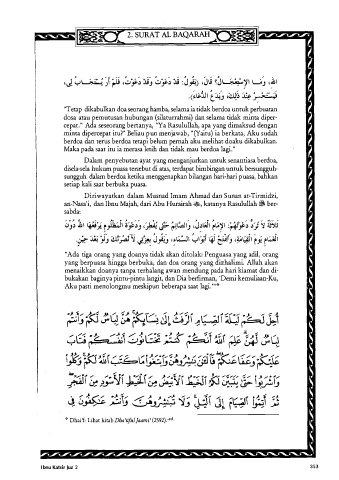 2. SURAT AL BAQARAH
اللهِ، وَمَا الِاسْتِعْجَالُ؟ قَالَ، (يَقُولُ: قَدْ دَعَوْتُ وَقَدْ دَعَوْتُ، فَلَمْ أَرَ يُسْتَجَابُ لِي،
فَيَسْتَحْسِرُ عِنْدَ ذَلِكَ، وَيَدَعُ الدُّعَاءَ).
"Tetap dikabulkan doa seorang hamba, selama ia tidak berdoa untuk perbuatan
dosa atau pemutusan hubungan (silaturrahmi) dan selama tidak minta diper-
cepat." Ada seseorang bertanya, "Ya Rasulullah, apa yang dimaksud dengan
minta dipercepat itu?" Beliau pun menjawab, "(Yaitu) ia berkata, Aku sudah
berdoa dan terus berdoa tetapi belum pernah aku melihat doaku dikabulkan.
Maka pada saat itu ia merasa letih dan tidak mau berdoa lagi."
Dalam penyebutan ayat yang menganjurkan untuk senantiasa berdoa,
disela-sela hukum puasa tersebut di atas, terdapat bimbingan untuk bersungguh-
sungguh dalam berdoa ketika menggenapkan bilangan hari-hari puasa, bahkan
setiap kali saat berbuka puasa.
Diriwayatkan dalam Musnad Imam Ahmad dan Sunan at-Tirmidzi,
an-Nasa'i, dan Ibnu Majah, dari Abu Hurairah, katanya, Rasulullah ﷺ ber-
sabda:
ثَلَاثَةٌ لَا تُرَدُّ دَعْوَتُهُمْ: الْإِمَامُ الْعَادِلُ، وَالصَّائِمُ حَتَّى يُفْطِرَ، وَدَعْوَةُ الْمَظْلُومِ يَرْفَعُهَا اللهُ دُونَ
الْغَمَامِ يَوْمَ الْقِيَامَةِ، وَتُفْتَحُ لَهَا أَبْوَابُ السَّمَاءِ، وَيَقُولُ بِعِزَّتِي لَأَنْصُرَنَّكَ وَلَوْ بَعْدَ حِينٍ.
"Ada tiga orang yang doanya tidak akan ditolak: Penguasa yang adil, orang
yang berpuasa hingga berbuka, dan doa orang yang dizhalimi. Allah akan
menaikkan doanya tanpa terhalang awan mendung pada hari kiamat dan di-
bukakan baginya pintu-pintu langit, dan Dia berfirman, 'Demi kemuliaan-Ku,
Aku pasti menolongmu meskipun beberapa saat lagi.'"*
أُحِلَّ لَكُمْ لَيْلَةَ الصِّيَامِ الرَّفَثُ إِلَىٰ نِسَائِكُمْ هُنَّ لِبَاسٌ لَكُمْ وَأَنْتُمْ
لِبَاسٌ لَهُنَّ عَلِمَ اللَّهُ أَنَّكُمْ كُنْتُمْ تَخْتَانُونَ أَنْفُسَكُمْ فَتَابَ
عَلَيْكُمْ وَعَفَا عَنْكُمْ فَالْآنَ بَاشِرُوهُنَّ وَابْتَغُوا مَا كَتَبَ اللَّهُ لَكُمْ وَكُلُوا
وَاشْرَبُوا حَتَّىٰ يَتَبَيَّنَ لَكُمُ الْخَيْطُ الْأَبْيَضُ مِنَ الْخَيْطِ الْأَسْوَدِ مِنَ الْفَجْرِ
ثُمَّ أَتِمُّوا الصِّيَامَ إِلَى اللَّيْلِ وَلَا تُبَاشِرُوهُنَّ وَأَنْتُمْ عَاكِفُونَ فِي
* Dha'if: Lihat kitab Dha'iiful Jaami' (2592).-ed.
Ibnu Katsir Juz 2
353